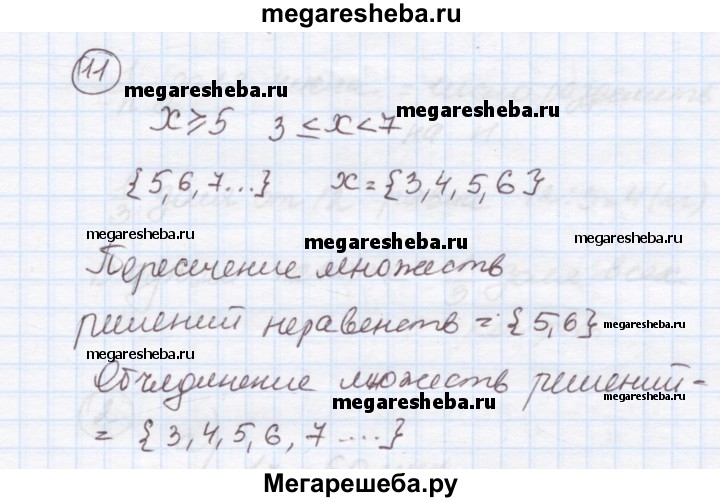 megaresheba.ru
11
megaresheba.ru megaresheba.ru
x ⩾ 5 3 ≤ x < 7
{5, 6, 7...} x = {3, 4, 5, 6}
megaresheba.ru megaresheba.ru megaresheba.ru
Пересечение множеств
решений неравенств = {5, 6} megaresheba.ru
megaresheba.ru
Объединение множеств решений -
megaresheba.ru megaresheba.ru
= {3, 4, 5, 6, 7 ....}
Мегарешеба.ру